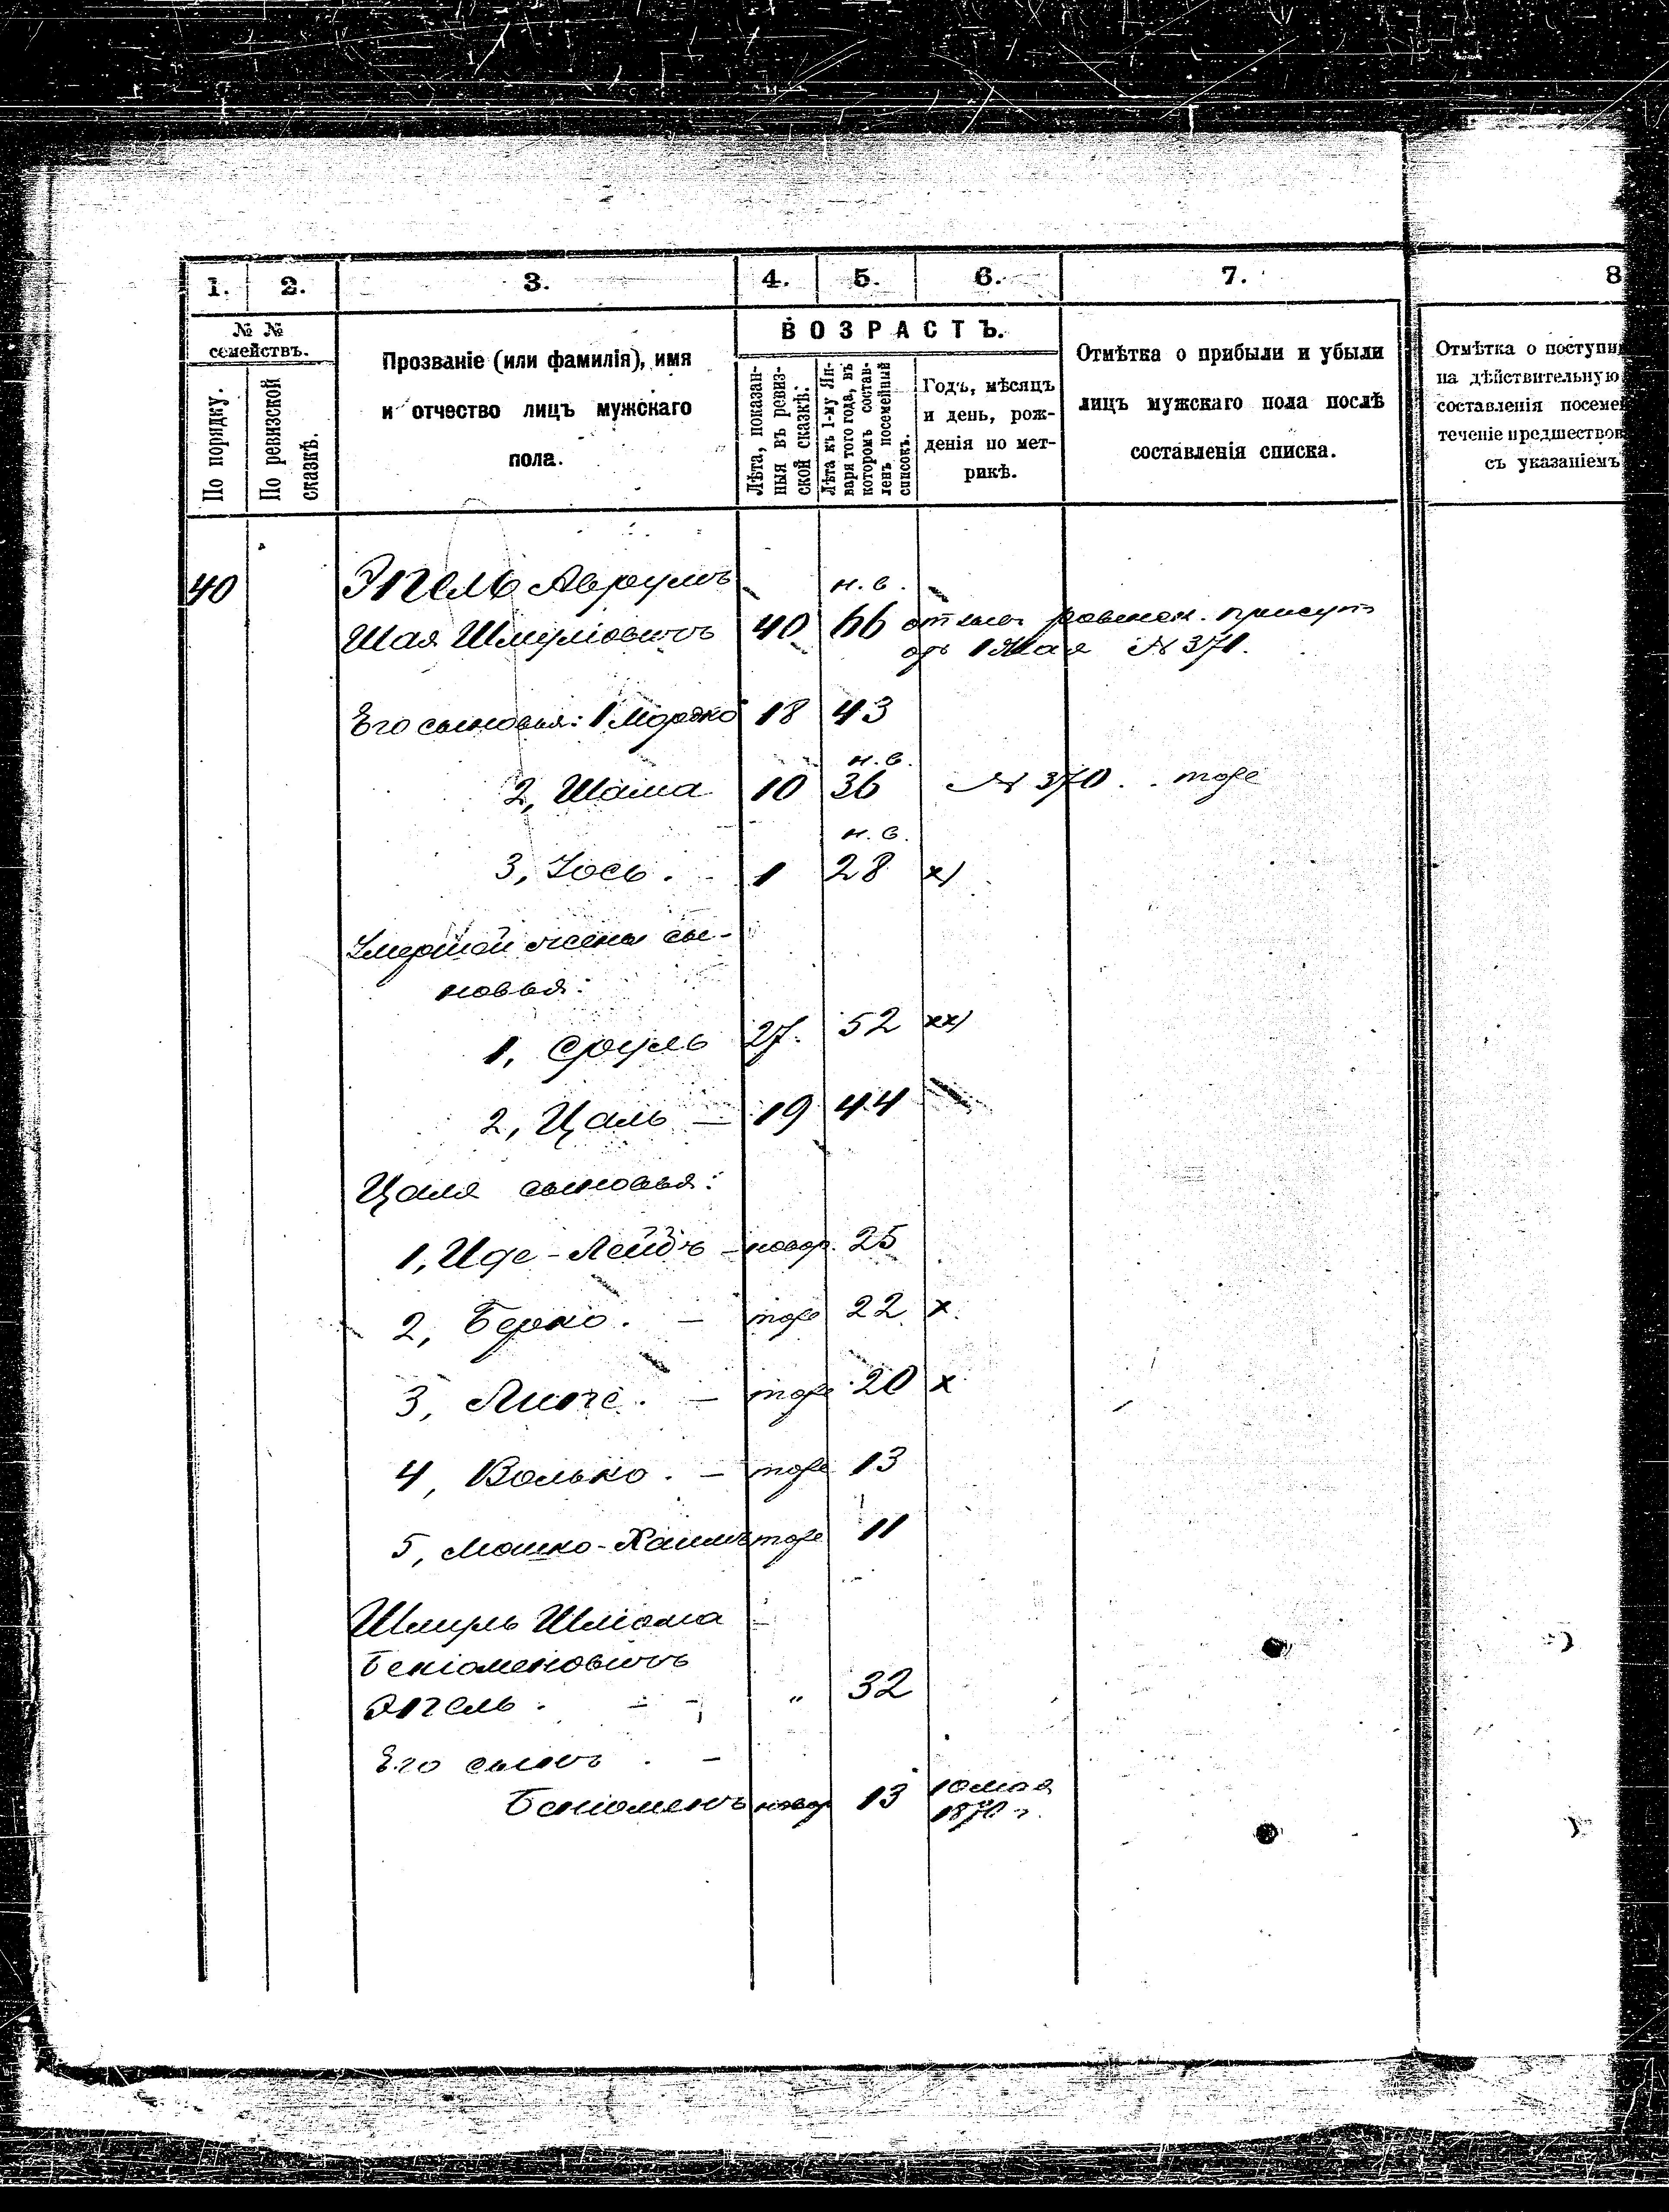 1. 2. 3. 4. 5. 6. 7. 8
№ №
семействъ.
По порядку.
По ревизской
сказкѣ.
Прозваніе (или фамилія), имя
и отчество лицъ мужскаго
пола.
ВОЗРАСТЪ.
Лѣта, показан-
ныя въ ревиз-
ской сказкѣ.
Лѣта къ 1-му Ян-
варя того года, въ
которомъ состав-
ленъ посемейный
списокъ.
Годъ, мѣсяцъ
и день, рож-
денія по мет-
рикѣ.
Отмѣтка о прибыли и убыли
лицъ мужскаго пола послѣ
составленія списка.
Отмѣтка о поступи
на дѣйствительную
составленія посеме
теченіе предшествов
съ указаніемъ
40 Энгель Аврумъ н. в.
Шая Шмуліовичъ 40 66
1 Мая № 371.
Его сыновья: 1 Мордко 18 43
н. в.
2, Шама 10 36 № 370 . . тоже
н. в.
3, Іось . 1 28 х)
Умершей жены сы-
новья:
1, Сруль 27. 52 хх)
2, Цаль — 19 44
Цаля сыновья:
1, Иде-Лейбъ — новор. 25
2, Берко . — тоже 22 х.
3, — тоже 20 х
4, Волько . — тоже 13
5, Мошко-Хаимъ тоже 11
Шмуль Шліома
Беніоменовичъ
Энгель . — — „ 32
Его сынъ . —
Беніоменъ новор 13 10 мая
1870 г.